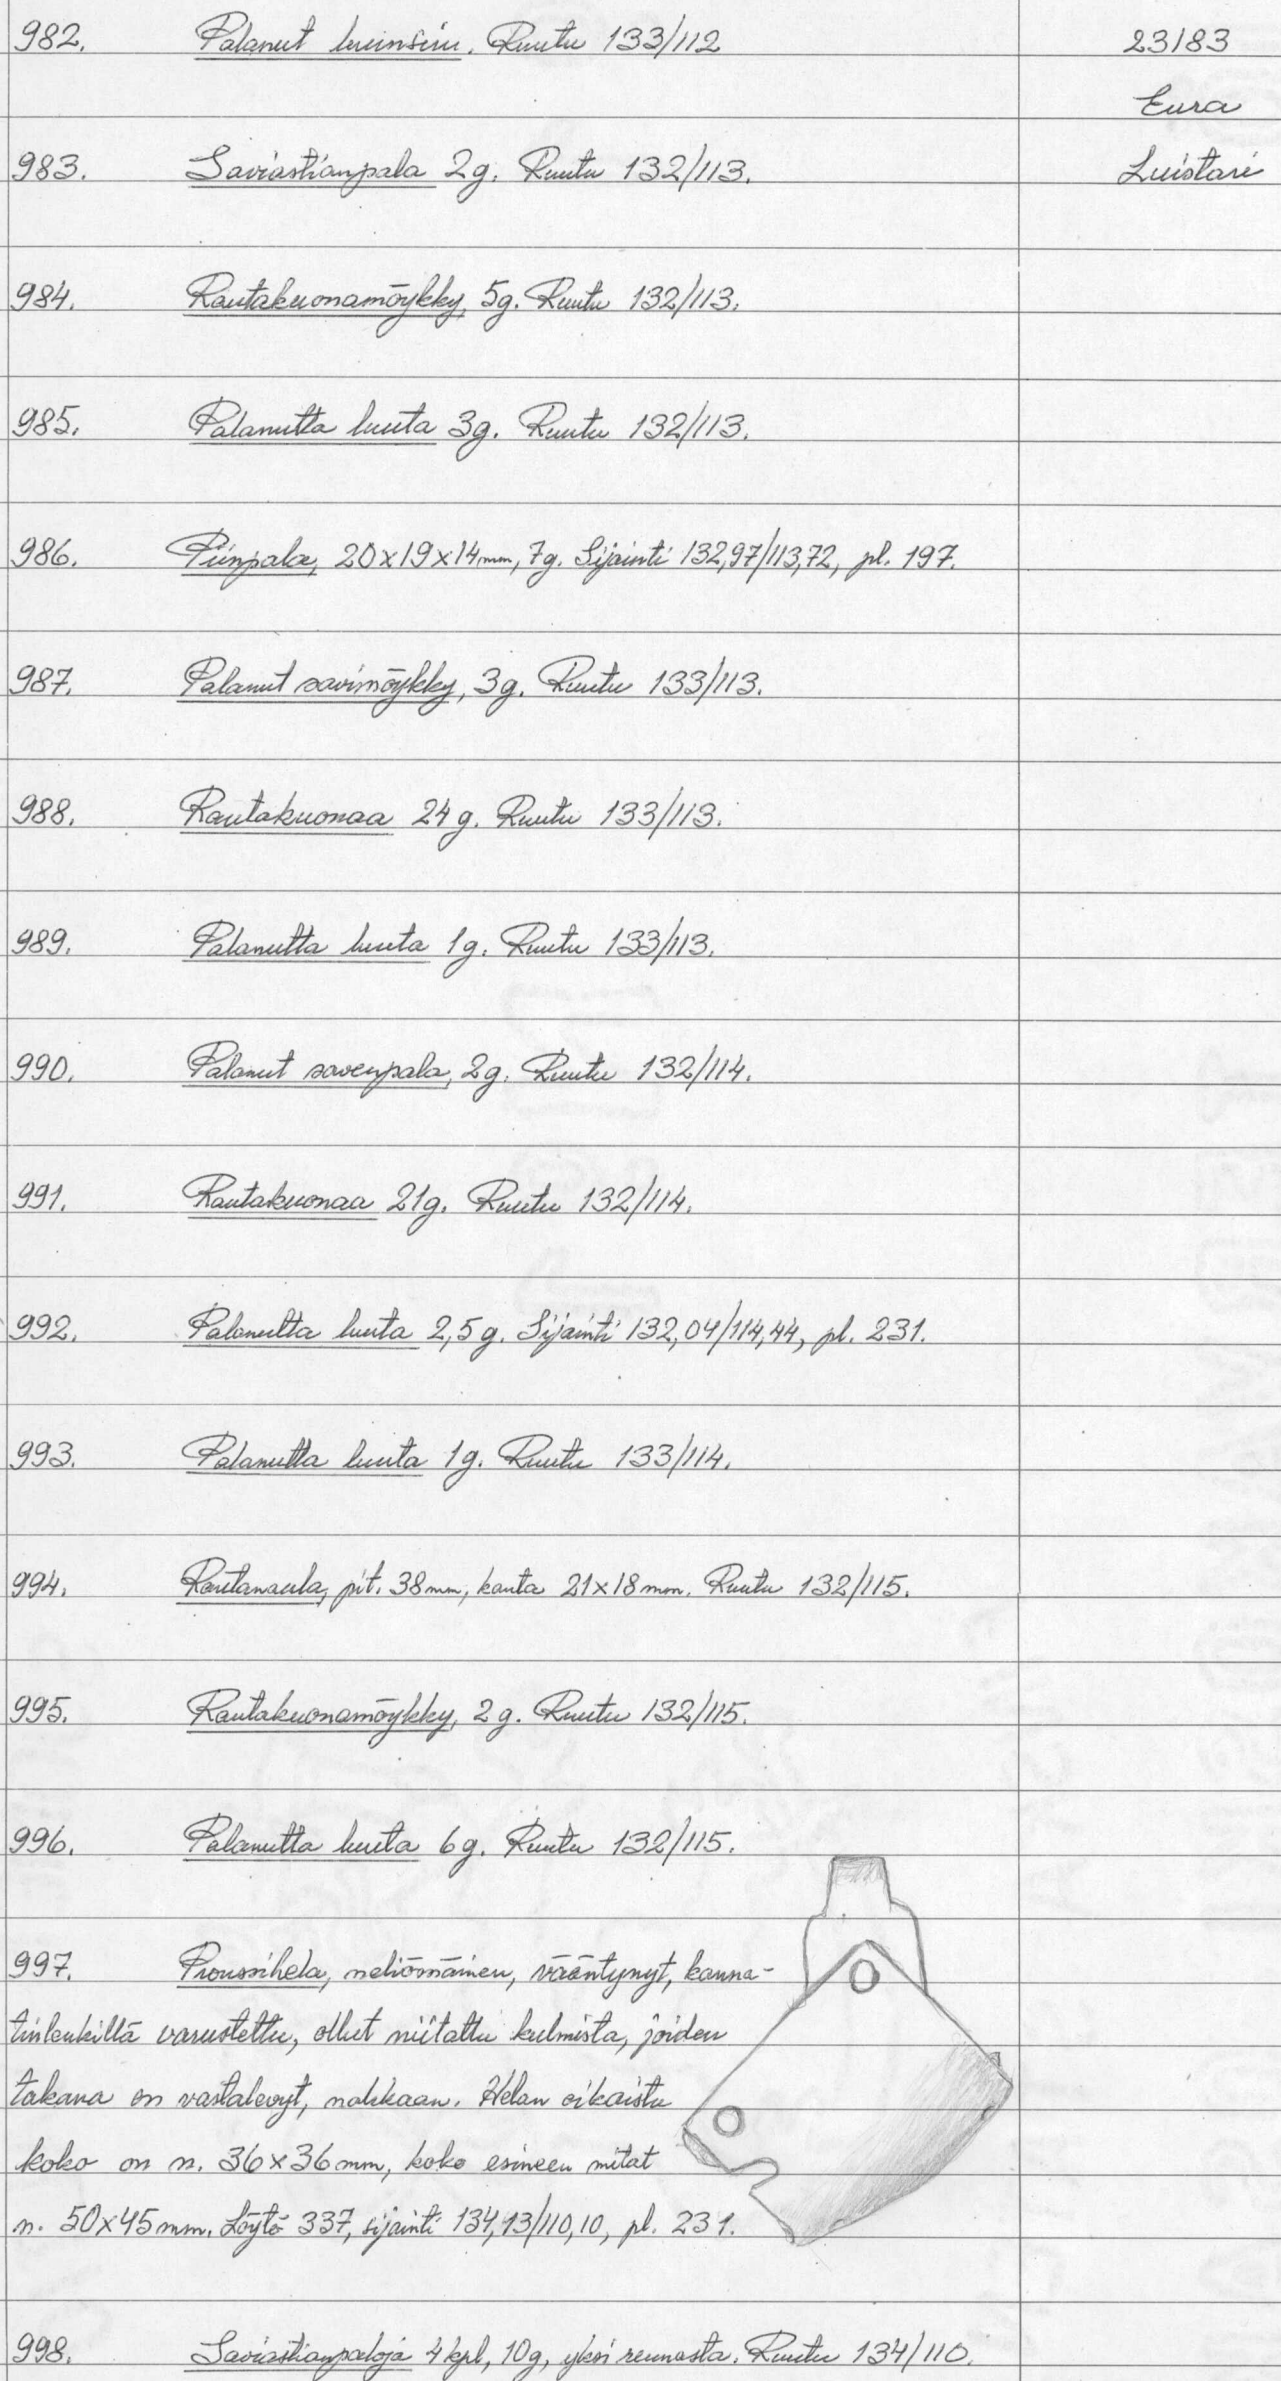 982. Palanut luunsiru. Ruutu 133/112 23183
Eura
983. Saviastianpala 2g. Ruutu 132/113. Luistari
984. Rautakuonamöykky, 5g. Ruutu 132/113.
985. Palanutta luuta 3g. Ruutu 132/113.
986. Piinpala, 20x19x14mm, 7g. Sijainti 132,97/113,72, pl. 197.
987. Palanut savimöykky, 3g. Ruutu 133/113.
988. Rautakuonaa 24g. Ruutu 133/113.
989. Palanutta luuta 1g. Ruutu 133/113.
990. Palanut savenpala, 2g. Ruutu 132/114.
991. Rautakuonaa 21g. Ruutu 132/114.
992. Palanutta luuta 2,5g. Sijainti 132,04/114,44, pl. 231.
993. Palanutta luuta 1g. Ruutu 133/114.
994. Rautanaula, pit. 38mm, kanta 21x18mm. Ruutu 132/115.
995. Rautakuonamöykky, 2g. Ruutu 132/115.
996. Palanutta luuta 6g. Ruutu 132/115.
997. Pronssihela, neliömäinen, vääntynyt, kanna-
tinlenkillä varustettu, ollut niitattu kulmista, joiden
takana on vastalevyt, nahkaan. Helan oikaistu
koko on n. 36x36mm, koko esineen mitat
n. 50x45mm. Löytö 337, sijainti 134,13/110,10, pl. 231.
998. Saviastianpaloja 4kpl, 10g, yksi reunasta. Ruutu 134/110.